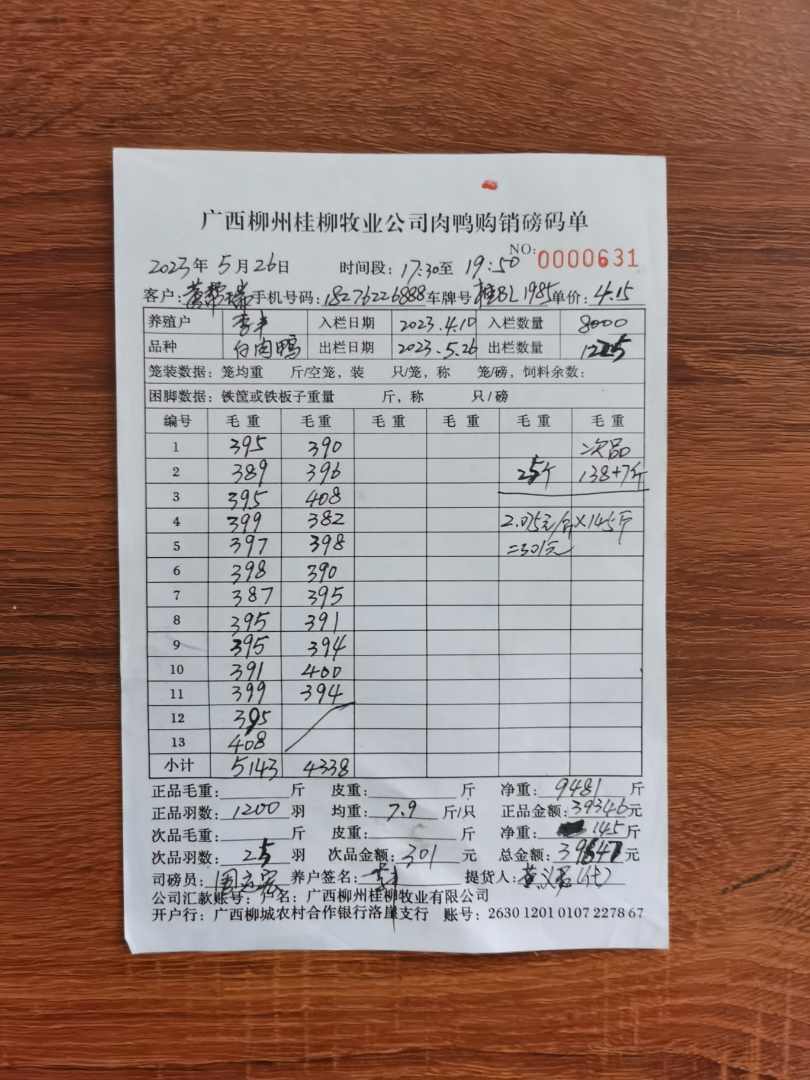 广西柳州桂柳牧业公司肉鸭购销磅码单
NO: 0000631
2023年 5月26日 时间段: 17:30至 19:50
客户: 手机号码: 18276226888 车牌号 桂BL1985 单价: 4.15
养殖户 李丰 入栏日期 2023.4.10 入栏数量 8000
品种 白肉鸭 出栏日期 2023.5.26 出栏数量 1225
笼装数据: 笼均重 斤/空笼, 装 只/笼, 称 笼/磅, 饲料余数:
困脚数据: 铁筐或铁板子重量 斤, 称 只/磅
编号 毛重 毛重 毛重 毛重 毛重 毛重
1 395 390 次品
2 389 396 25个 138+7斤
3 395 408
4 399 382 2.075元/斤×145斤
5 397 398 =301元
6 398 390
7 387 395
8 395 391
9 395 394
10 391 400
11 399 394
12 395
13 408
小计 5143 4338
正品毛重: 斤 皮重: 斤 净重: 9481 斤
正品羽数: 1200 羽 均重: 7.9 斤/只 正品金额: 39346元
次品毛重: 斤 皮重: 斤 净重: 145斤
次品羽数: 25 羽 次品金额: 301 元 总金额: 39647元
司磅员: 养户签名: 提货人: (代)
公司汇款账号: 户名: 广西柳州桂柳牧业有限公司
开户行: 广西柳城农村合作银行洛崖支行 账号: 2630 1201 0107 2278 67